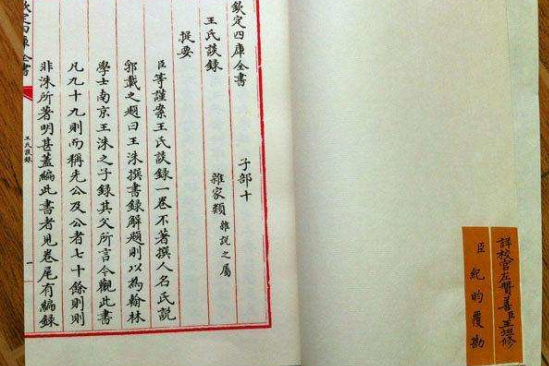 詳校官左贊善臣王坦修
臣紀昀覆勘
欽定四庫全書 子部十
王氏談錄 雜家類 雜說之屬
提要
臣等謹案王氏談錄一卷不著撰人名氏說
郛載之題曰王洙撰書錄解題則以為翰林
學士南京王洙之子錄其父所言今觀此書
凡九十九則而稱先公及公者七十餘則則
非洙所著明甚蓋編此書者見卷尾有編錄
欽定四庫全書
王氏談錄
一